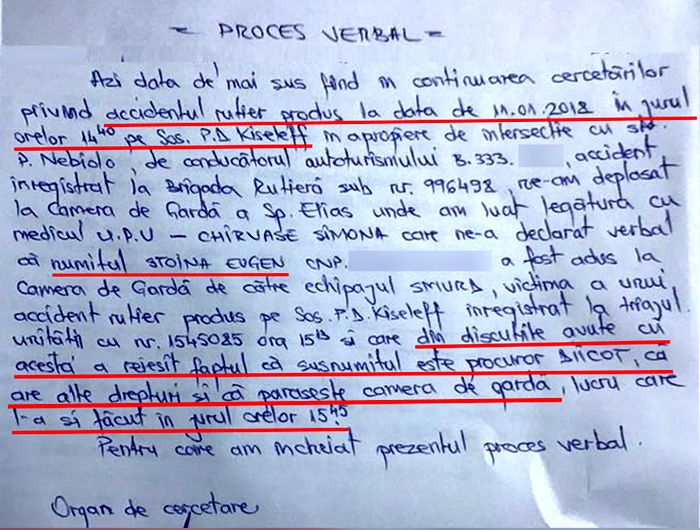 = PROCES VERBAL =
Azi data de mai sus fiind în continuarea cercetărilor
privind accidentul rutier produs la data de 11.01.2018 în jurul
orelor 14⁴⁰ pe Sos. P.D. Kiseleff în apropiere de intersectie cu str.
P. Nebiolo, de conducătorul autoturismului B.333. , accident
inregistrat la Brigada Rutieră sub nr. 996498, ne-am deplasat
la Camera de Gardă a Sp. Elias unde am luat legătura cu
medicul U.P.U – CHIRVASE SIMONA care ne-a declarat verbal
că numitul STOINA EUGEN CNP. a fost adus la
Camera de Gardă de către echipajul SMURD, victima a unui
accident rutier produs pe Sos. P.D. Kiseleff inregistrat la triajul
unității cu nr. 1545085 ora 15¹³ si care din discutiile avute cu
acesta a reiesit faptul că susnumitul este procuror DIICOT, că
are alte drepturi si că paraseste camera de gardă, lucru care
l-a si făcut în jurul orelor 15⁴⁵.
Pentru care am incheiat prezentul proces verbal.
Organ de cercetare